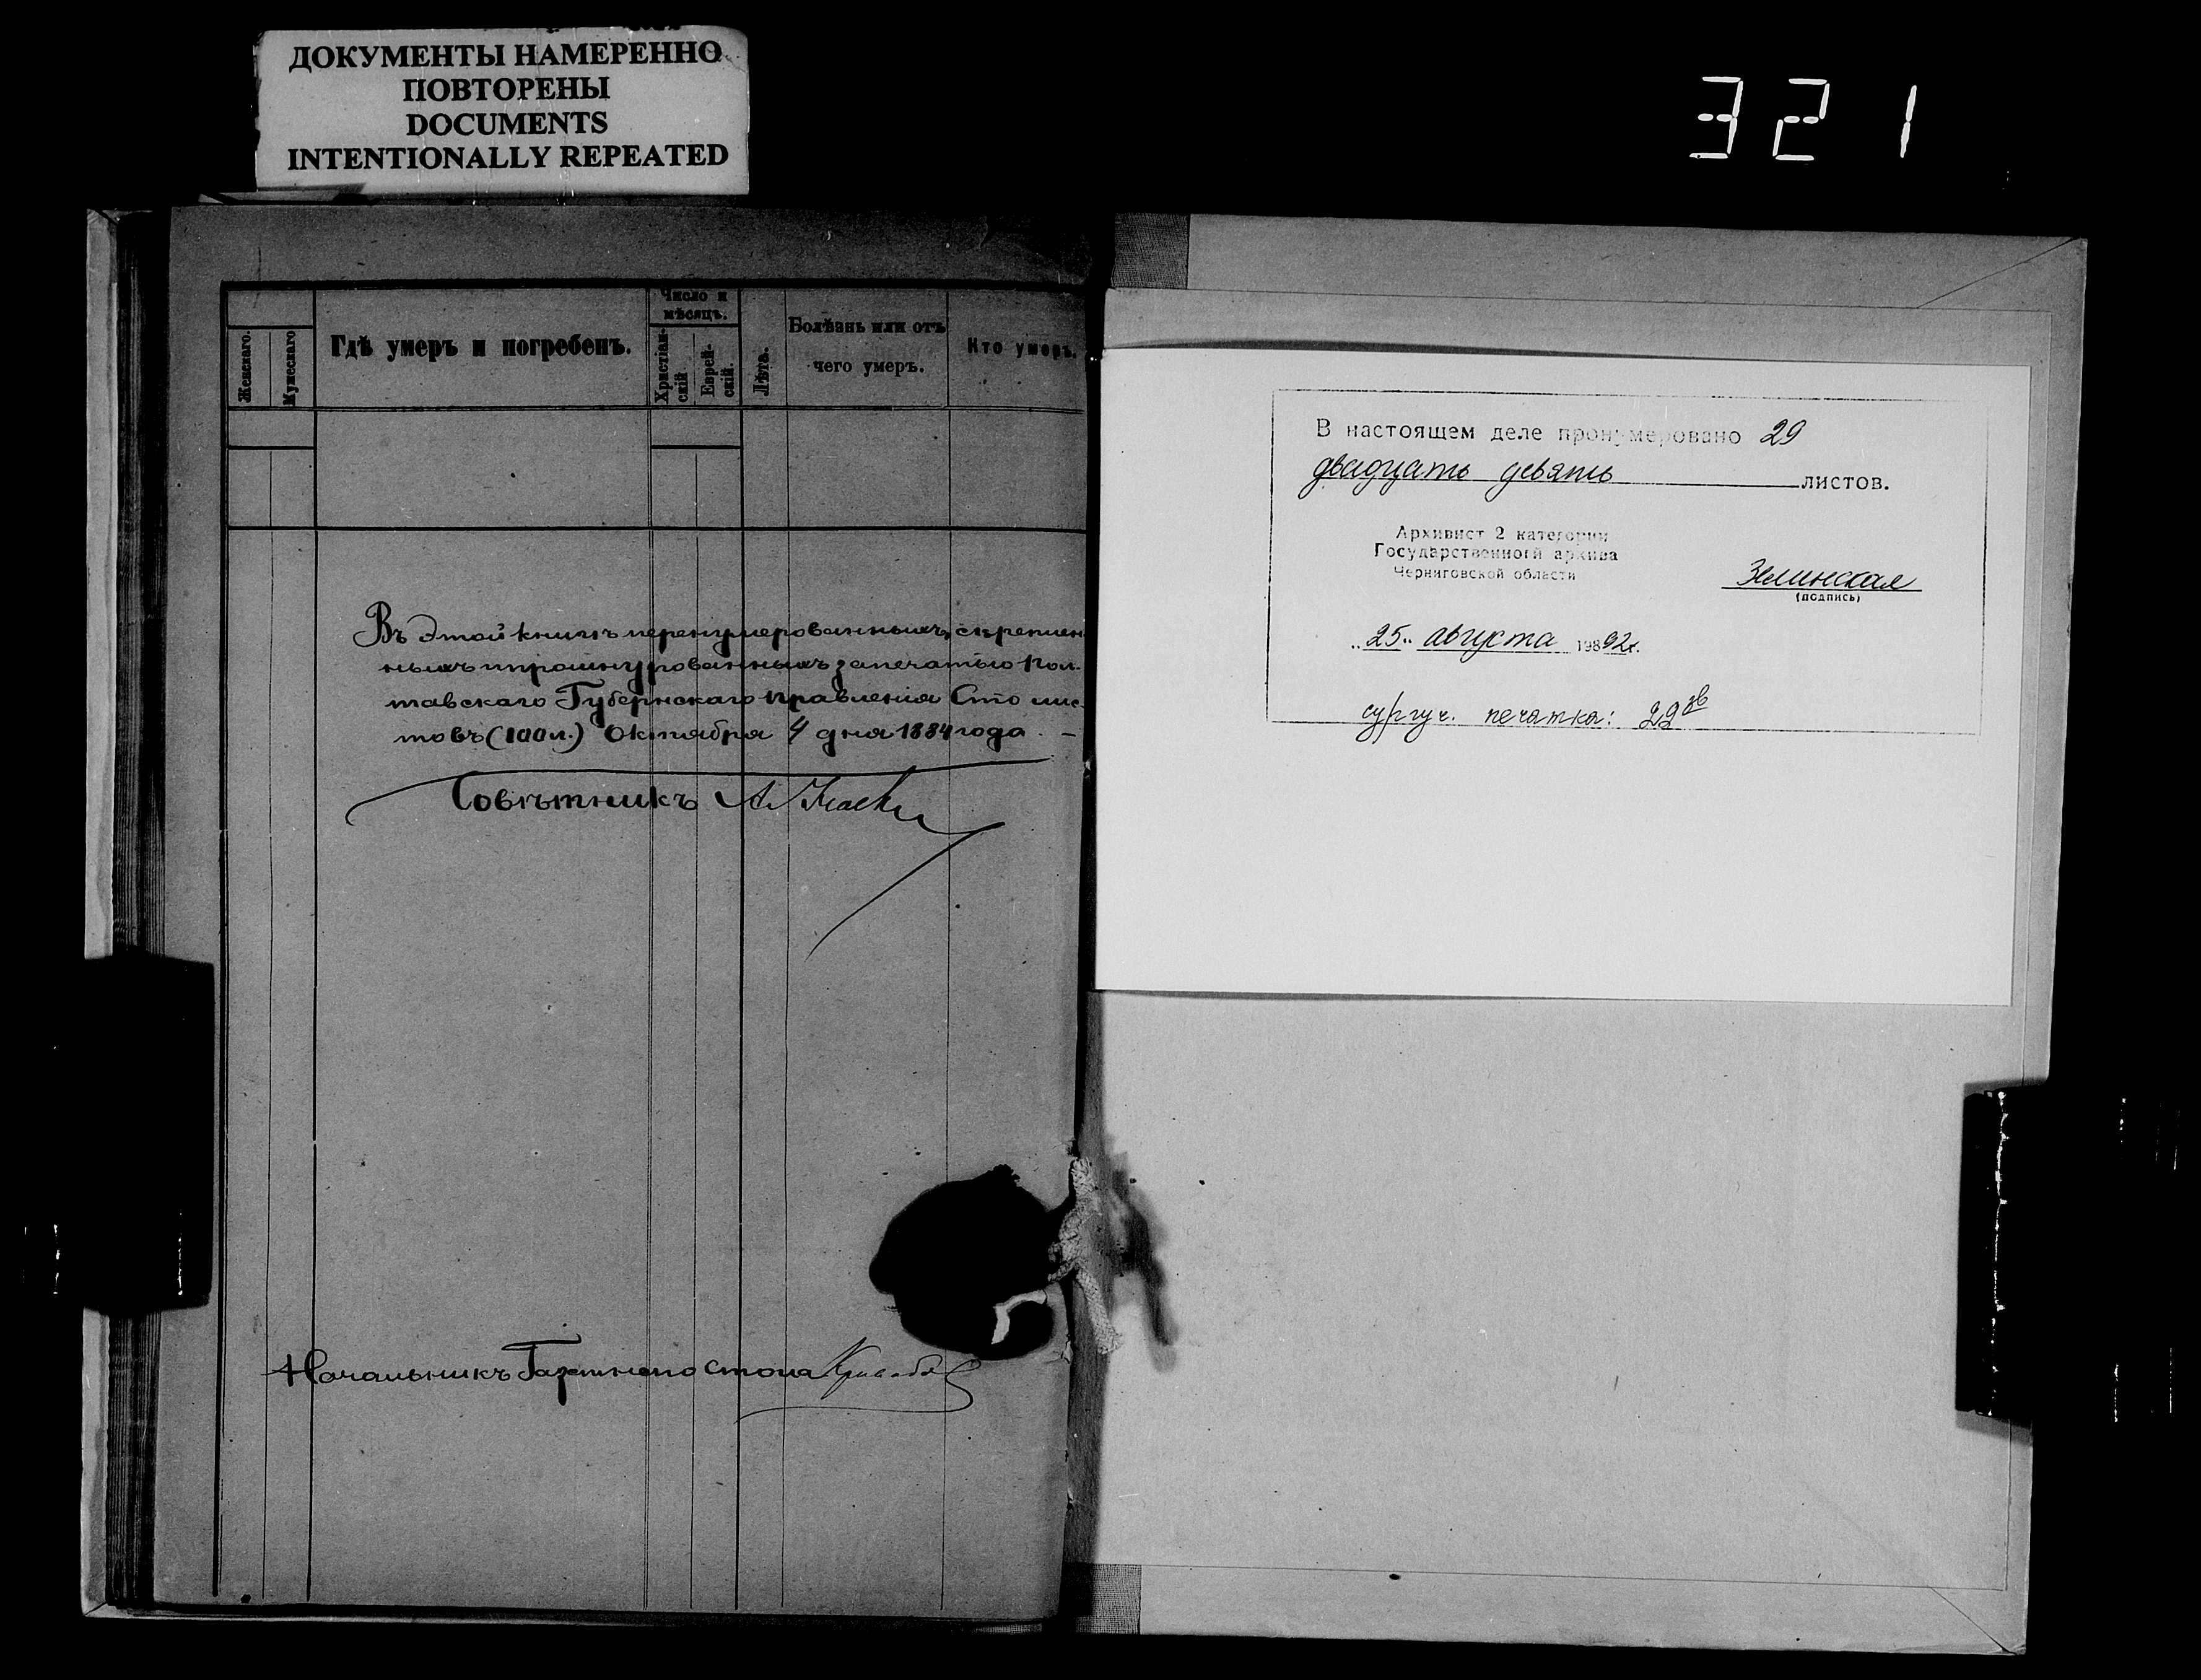 ДОКУМЕНТЫ НАМЕРЕННО
ПОВТОРЕНЫ
DOCUMENTS
INTENTIONALLY REPEATED
321
Женскаго.
Мужескаго
Гдѣ умеръ и погребенъ.
Число и
мѣсяцъ.
Христіан-
скій
Еврей-
скій.
Лѣта.
Болѣзнь или отъ
чего умеръ.
Кто умеръ.
Въ этой книгѣ перенумерованныхъ, скрѣплен
ныхъ и прошнурованныхъ за печатью Пол-
тавскаго Губернскаго Правленія Сто лис-
товъ (100 л.) Октября 4 дня 1884 года. —
Совѣтникъ А.
Начальникъ Газетнаго стола
В настоящем деле пронумеровано 29
двадцать девять листов.
Архивист 2 категории
Государственного архива
Черниговской области
Зелинская
(подпись)
„25„ августа 19892г.
сургуч. печатка: 29 зв